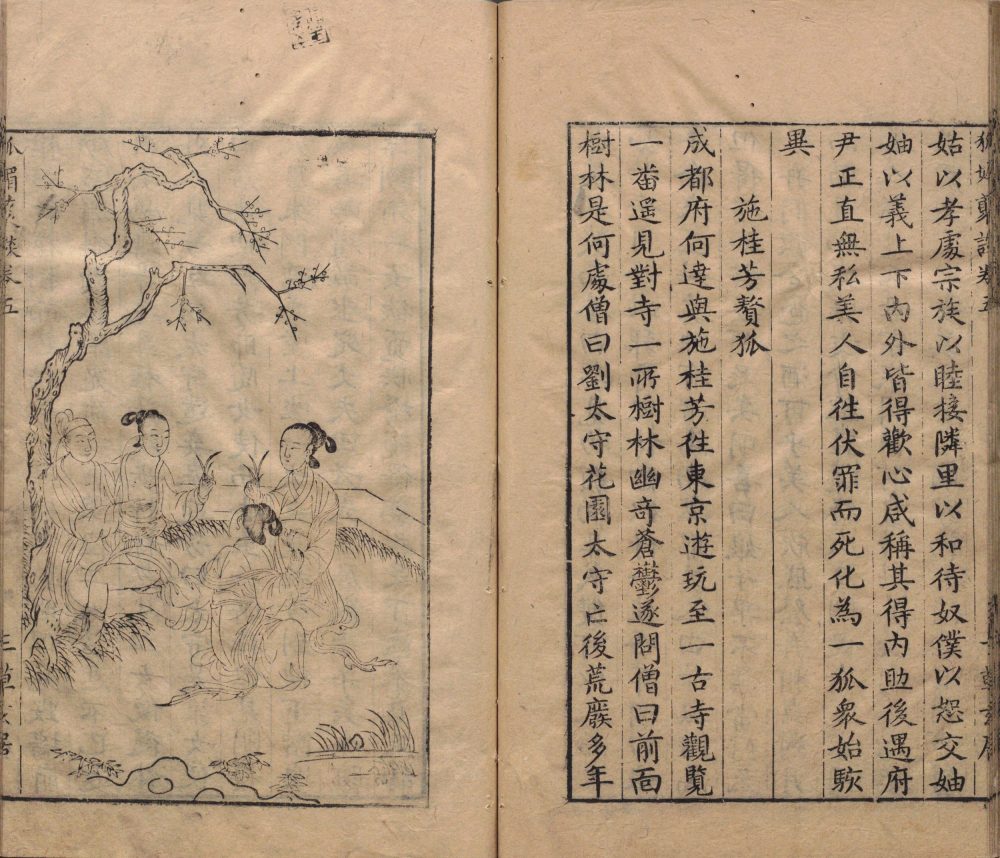 狐媚叢談卷五
姑以孝處宗族以睦接隣里以和待奴僕以恕交妯
妯以義上下內外皆得歡心咸稱其得內助後遇府
尹正直無私美人自徃伏罪而死化為一狐衆始駭
異
施桂芳贅狐
成都府何達與施桂芳徃東京遊玩至一古寺觀覽
一畨遥見對寺一所樹林幽竒蒼鬱遂問僧曰前面
樹林是何處僧曰劉太守花園太守亡後荒廢多年
狐媚叢談卷五
草玄居